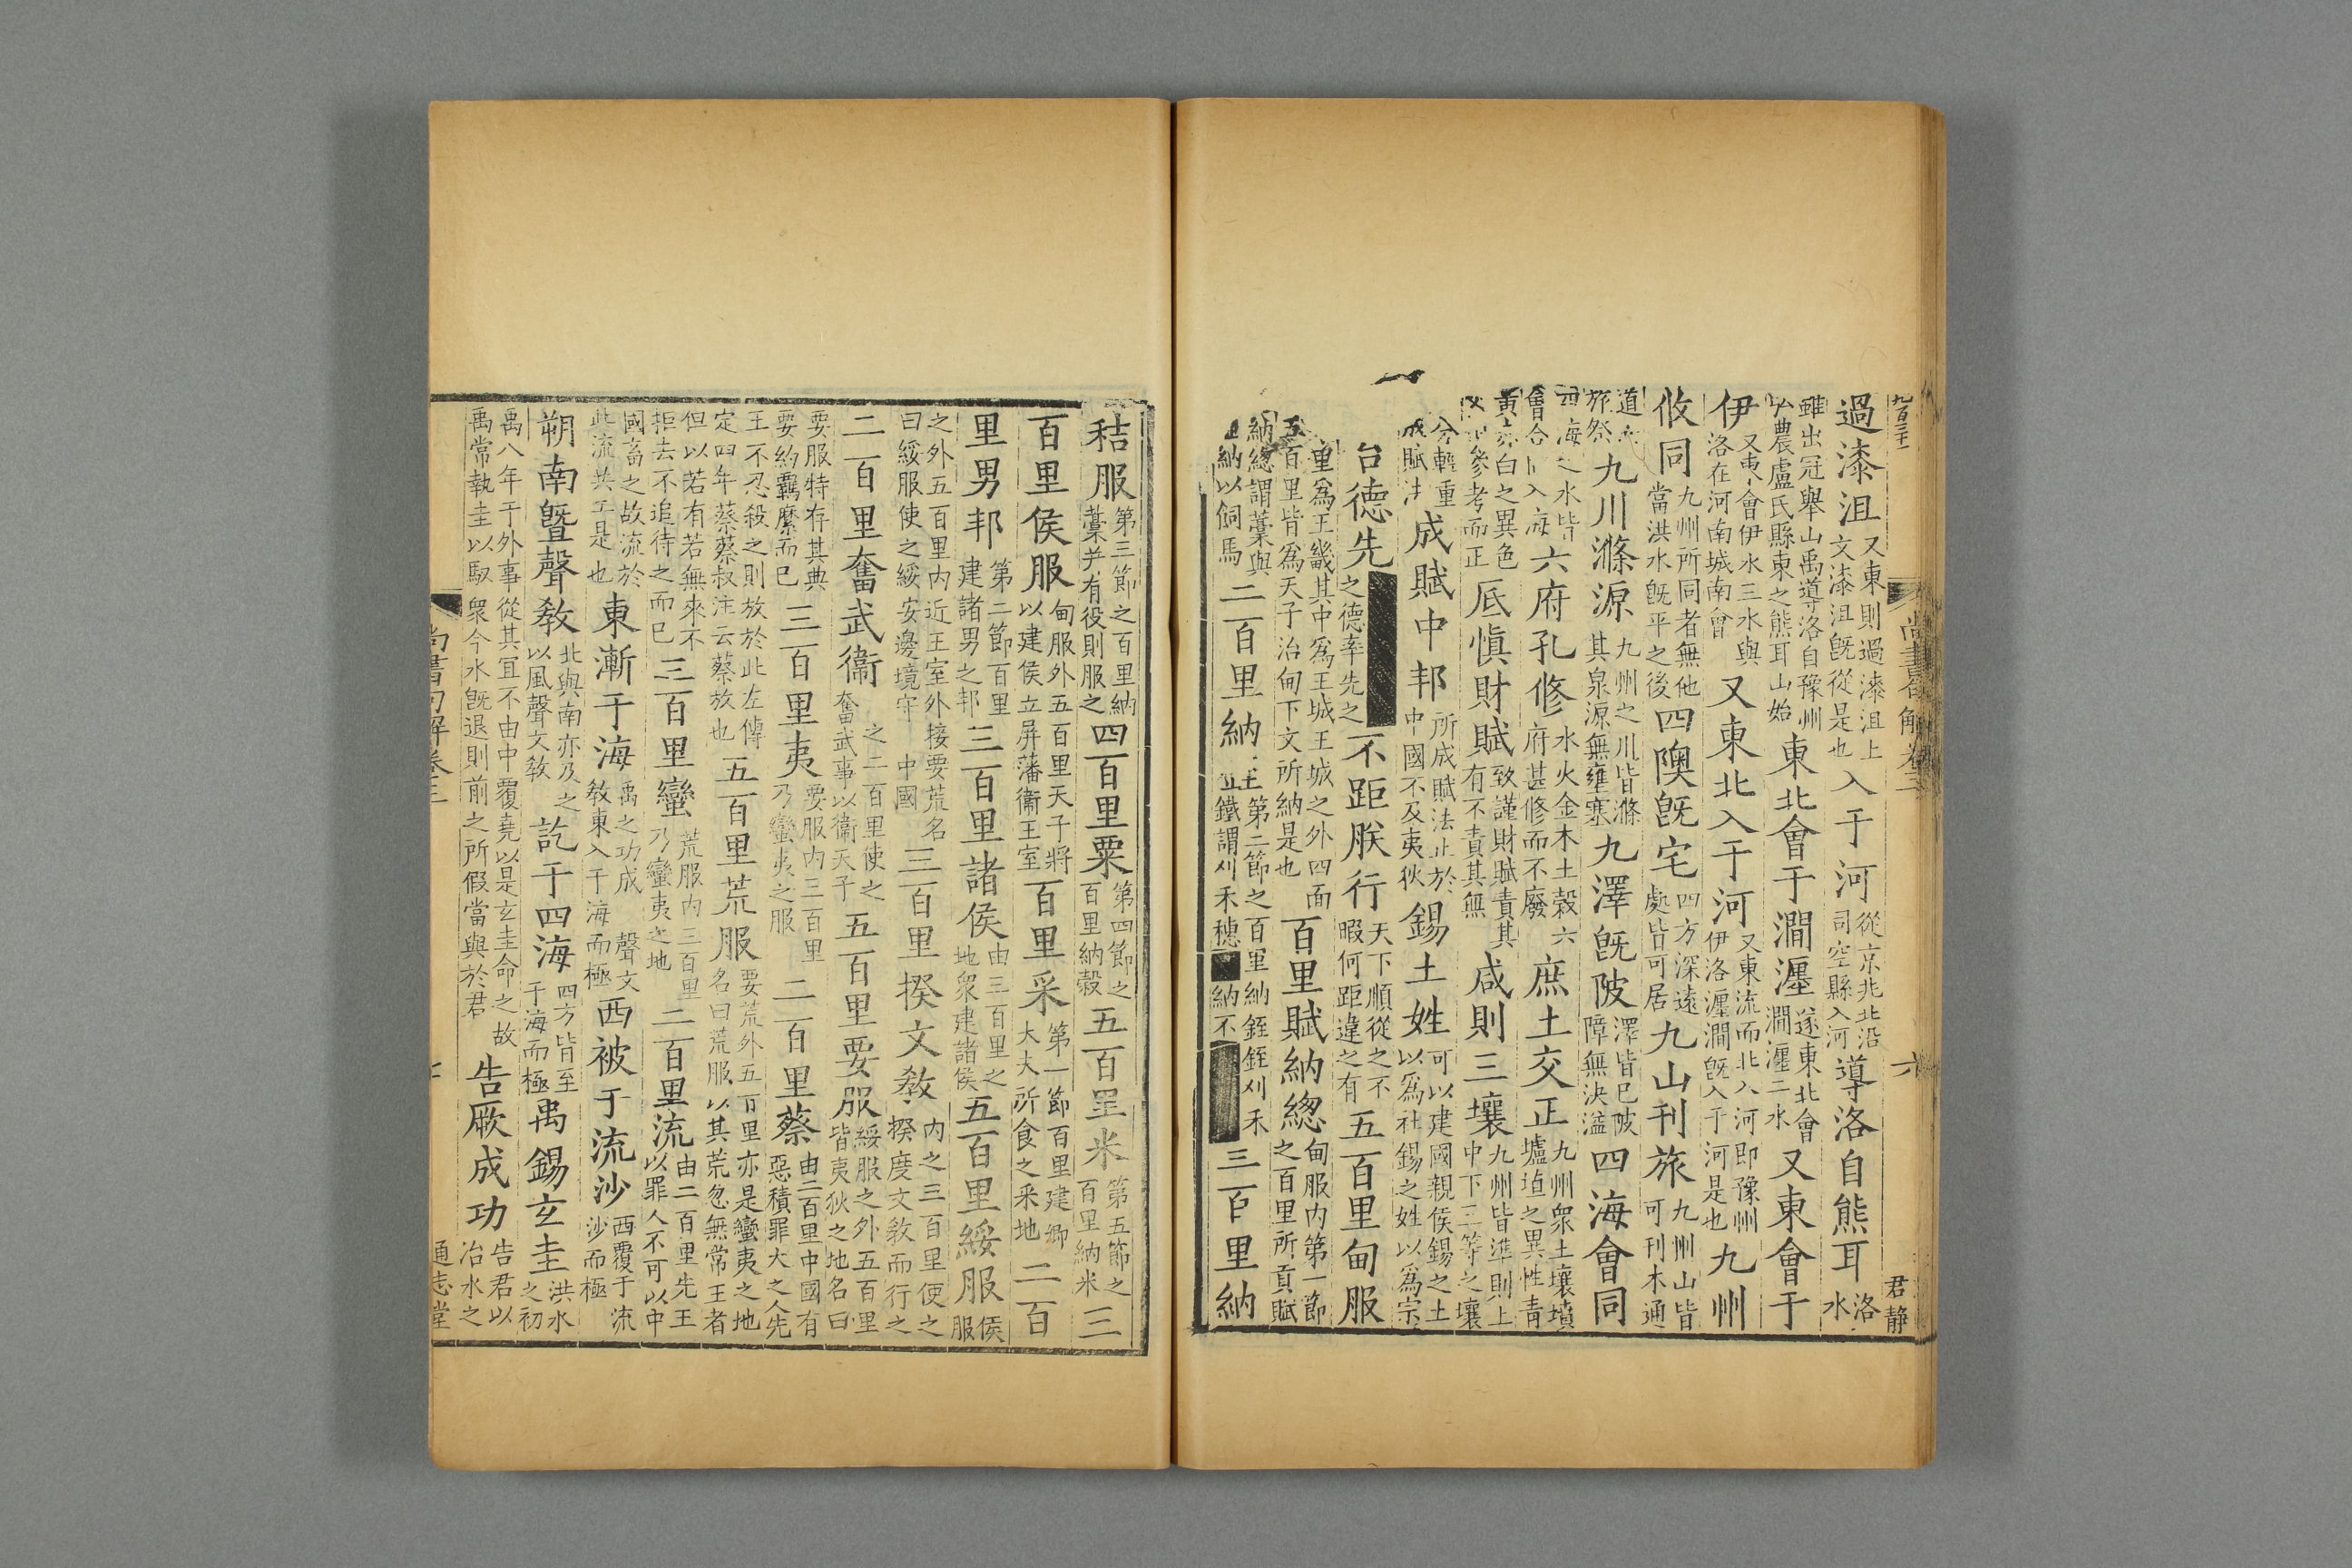 九百三十
尚書句解卷三
六
君靜
過漆沮又東則過漆沮上文漆沮旣從是也入于河從京兆北沿司空縣入河導洛自熊耳洛水
雖出冠舉山禹導洛自豫州農盧氏縣東之熊耳山始東北會于澗瀍遂東北會澗瀍二水又東會于
伊又東會伊水三水與洛在河南城南會又東北入于河又東流而北入河卽豫州伊洛瀍澗旣入于河是也九州
攸同九州所同者無他當洪水旣平之後四隩旣宅四方深遠處皆可居九山刊旅九州山皆可刊木通
道旅祭九川滌源九州之川皆滌其泉源無壅塞九澤旣陂澤皆已陂障無決溢四海會同
四海之水皆會合入海六府孔修水火金木土穀六府甚修而不廢庶土交正九州衆土壤墳墟埴之異性靑
黃白之異色參考而正厎愼財賦致謹財賦責其有不責其無咸則三壤九州皆準則上中下三等之壤
分輕重成賦法成賦中邦所成賦法止於中國不及夷狄錫土姓可以建國親侯錫之土以爲社錫之姓以爲宗
台德先之德率先之不距朕行天下順從之不暇何距違之有五百里甸服
畺爲王畿其中爲王城王城之外四面五百里皆爲天子治甸下文所納是也百里賦納總甸服內第一節之百里所貢賦
納總謂藁與並納以飼馬二百里納銍第二節之百里納銍銍刈禾鐵謂刈禾穗納不三百里納
秸服第三節之百里納藁幷有役則服之四百里粟第四節之百里納穀五百里米第五節之百里納米三
百里侯服甸服外五百里天子將以建侯立屏藩衞王室百里采第一節百里建卿大夫所食之采地二百
里男邦第二節百里建諸男之邦三百里諸侯由三百里之地衆建諸侯五百里綏服侯服
之外五百里內近王室外接要荒名曰綏服使之綏安邊境守中國三百里揆文敎內之三百里使之揆度文敎而行之
二百里奮武衞之二百里使之奮武事以衞天子五百里要服綏服之外五百里皆夷狄之地名曰
要服特存其典要約羈縻而已三百里夷要服內三百里乃蠻夷之服二百里蔡由二百里中國有惡積罪大之人先
王不忍殺之則放於此左傳定四年蔡蔡叔注云蔡放也五百里荒服要荒外五百里亦是蠻夷之地名曰荒服以其荒忽無常王者
但以若有若無來不拒去不追待之而已三百里蠻荒服內三百里乃蠻夷之地二百里流由二百里先王以罪人不可以中
國畜之故流於此流共工是也東漸于海禹之功成聲文敎東入于海而極西被于流沙西覆于流沙而極
朔南曁聲敎北與南亦及之以風聲文敎訖于四海四方皆至于海而極禹錫玄圭洪水之初
禹八年于外事從其宜不由中覆堯以是玄圭命之故禹常執圭以馭衆今水旣退則前之所假當與於君告厥成功告君以治水之
尚書句解卷三
七
通志堂